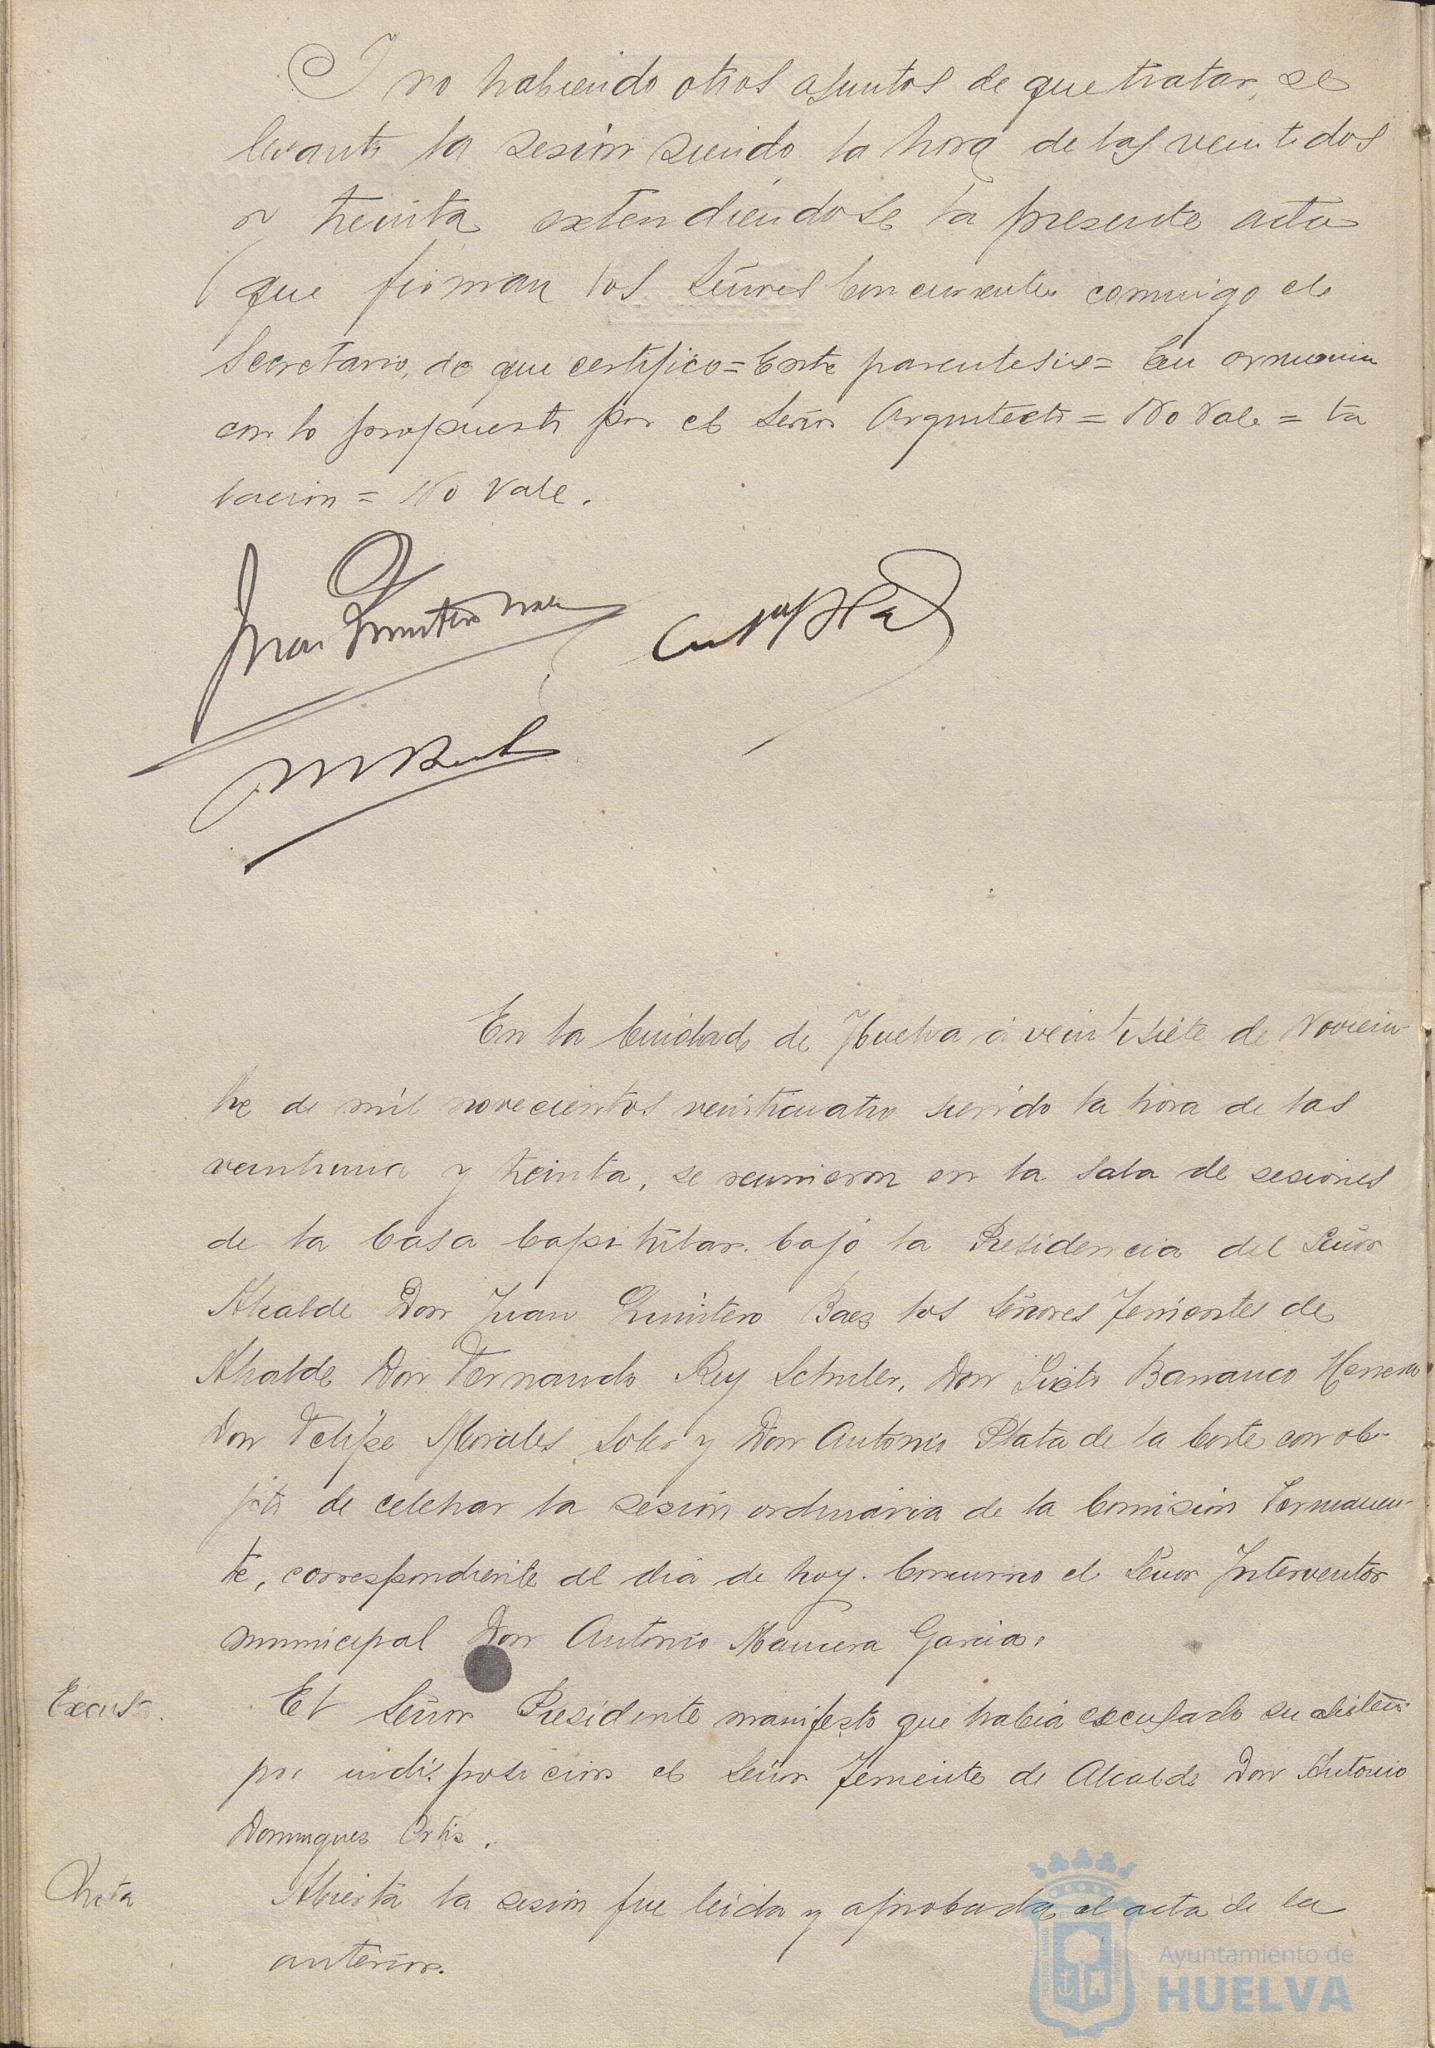 Y no habiendo otros asuntos de que tratar, se
levantó la sesión siendo la hora de las veintidos
y treinta extendiendose la presente acta
que firman los Señores Concurrentes conmigo el
Secretario, de que certifico = Entre parentesis = En armonia
con lo propuesto por el Señor Arquitecto = No Vale = ta
lacion = No Vale.
Juan Quintero Baez
M Bu
En la Ciudad de Huelva á veintisiete de Noviem-
bre de mil novecientos veinticuatro siendo la hora de las
veintiuna y treinta, se reunieron en la Sala de sesiones
de la Casa Capitular. bajo la Presidencia del Señor
Alcalde Don Juan Quintero Baez los Señores Tenientes de
Alcalde Don Fernando Rey Schuler, Don Sixto Barranco Herrera
Don Felipe Morales Soler y Don Antonio Plata de la Corte con ob-
jeto de celebrar la sesión ordinaria de la Comisión Permanen-
te, correspondiente al dia de hoy. Concurrió el Señor Interventor
municipal Don Antonio Mancera Garcia.
Excusa.
El Señor Presidente manifestó que habia excusado su asisten
por indisposicion el Señor Teniente de Alcalde Don Antonio
Dominguez Ortiz.
Acta
Abierta la sesión fue leida y aprobada el acta de la
anterior.
Ayuntamiento de
HUELVA